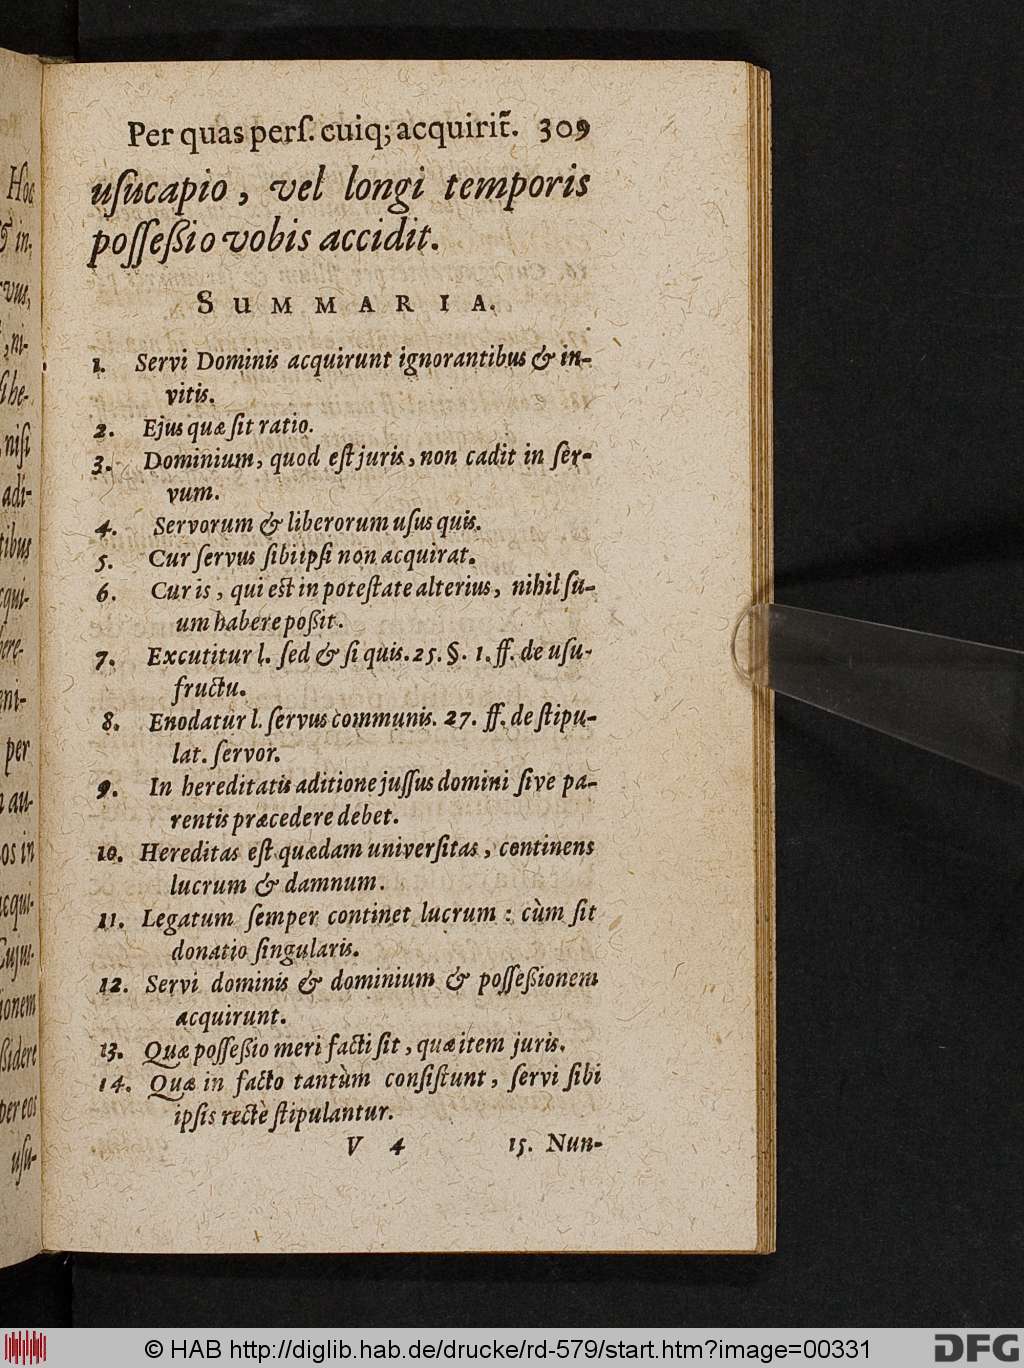 Hoc
& in-
rvus,
, ni-
si he-
nisi
adi-
tibus
cqui-
here-
eni-
per
n au-
os in
acqui-
Cujus-
ionem
ßidere
per eos
uſu-
Per quas perſ. cuiq; acquirit̃. 309
uſucapio, vel longi temporis
poſſeßio vobis accidit.
SUMMARIA.
1. Servi Dominis acquirunt ignorantibus & in-
vitis.
2. Ejus quæ ſit ratio.
3. Dominium, quod eſt juris, non cadit in ſer-
vum.
4. Servorum & liberorum uſus quis.
5. Cur ſervus ſibiipſi non acquirat.
6. Cur is, qui est in poteſtate alterius, nihil ſu-
um habere poßit.
7. Excutitur l. ſed & ſi quis. 25. §. 1. ff. de uſu-
fructu.
8. Enodatur l. ſervus communis. 27. ff. de ſtipu-
lat. ſervor.
9. In hereditatis aditione juſſus domini ſive pa-
rentis præcedere debet.
10. Hereditas eſt quædam univerſitas, continens
lucrum & damnum.
11. Legatum ſemper continet lucrum: cùm ſit
donatio ſingularis.
12. Servi dominis & dominium & poſſeßionem
acquirunt.
13. Quæ poſſeßio meri facti ſit, quæ item juris.
14. Quæ in facto tantùm conſiſtunt, ſervi ſibi
ipſis rectè ſtipulantur.
V 4 15. Nun-
© HAB http://diglib.hab.de/drucke/rd-579/start.htm?image=00331
DFG